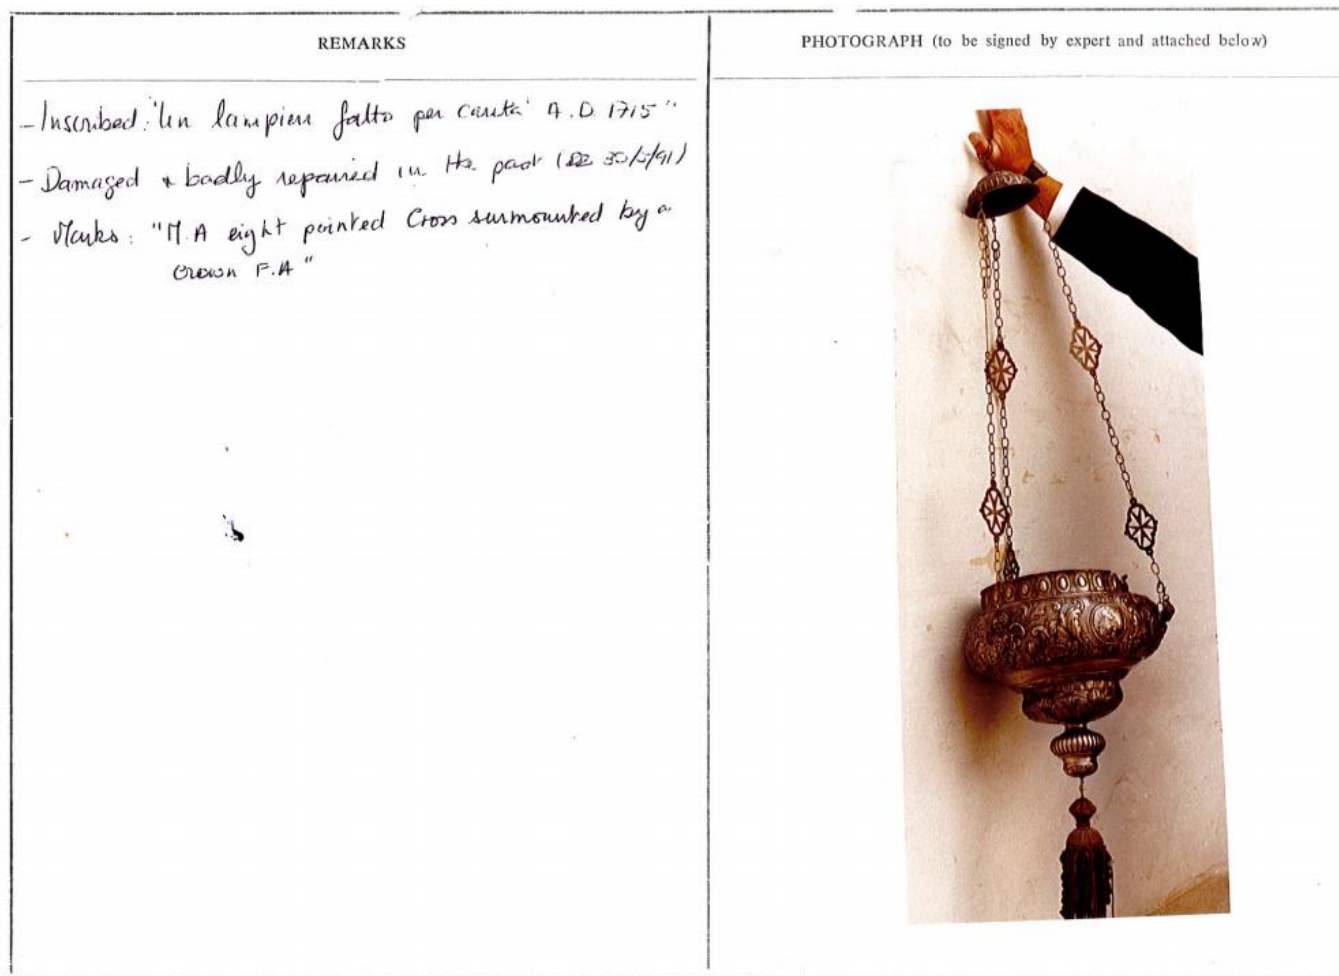 REMARKS
- Inscribed: "Un lampieri fatto per carità A.D. 1715"
- Damaged & badly repaired in the past (30/5/91)
- Marks: "M.A eight pointed Cross surmounted by a
Crown F.A"
PHOTOGRAPH (to be signed by expert and attached below)